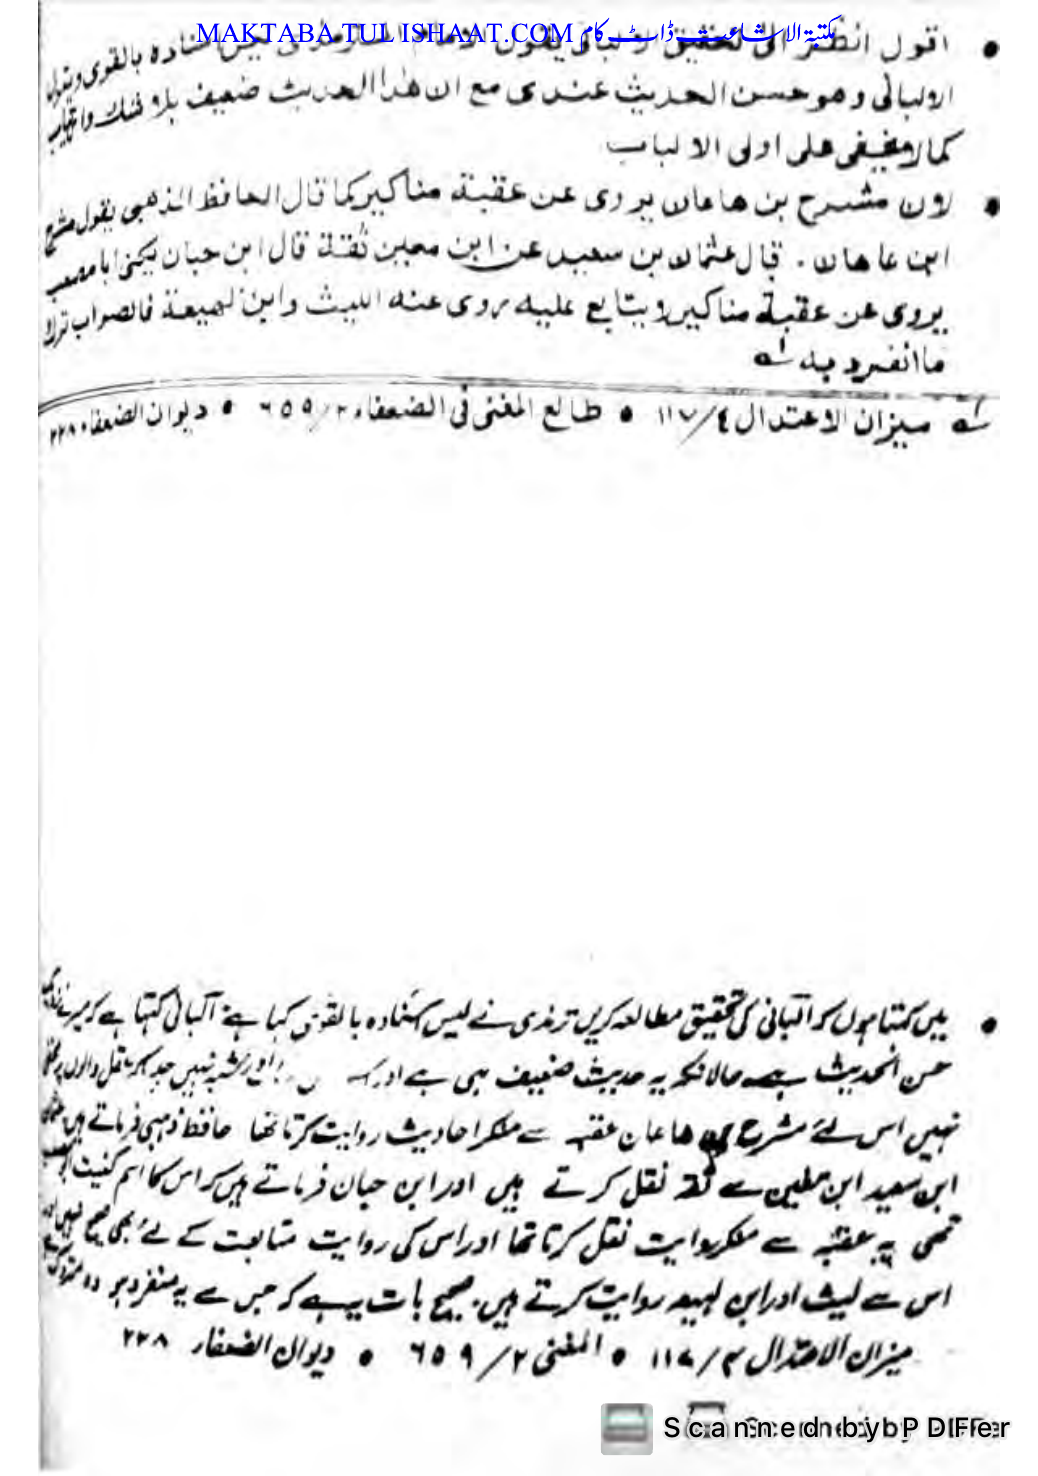 MAKTABA TUL ISHAAT.COM مکتبۃ الاشاعت ڈاٹ کام
• اقول انظر الی تحقیق یقول اسناده بالقوی ویقول
الالبانی وهو حسن الحدیث عندی مع ان هذا الحدیث ضعیف بلا شك وارتیاب
كمالا یخفی علی اولی الالباب
• لان مشرح بن هاعان یروی عن عقبة مناکیر کما قال الحافظ الذهبی یقول مشرح
ابن عاهان . قال عثمان بن سعید عن ابن معین ثقة قال ابن حبان یکنی ابا مصعب
یروی عن عقبة مناکیر لا یتابع علیه یروی عنه اللیث وابن لهیعة فالصواب ترك
ما انفرد به لـه
لـه میزان الاعتدال ٤/١١٧ • طالع المغنی فی الضعفاء ٢/٦٥٩ • دیوان الضعفاء ٢٢٨
• میں کہتا ہوں کہ البانی کی تحقیق مطالعہ کریں ترمذی نے لیس اسنادہ بالقوی کہا ہے البانی کہتا ہے کہ میرے نزدیک
حسن الحدیث ہے حالانکہ یہ حدیث ضعیف ہی ہے اور شبہ نہیں جیسا کہ عقل والوں پر مخفی
نہیں اس لئے مشرح بن ھاعان عقبہ سے منکر احادیث روایت کرتا تھا حافظ ذہبی فرماتے ہیں
ابن سعید ابن معین سے ثقہ نقل کرتے ہیں اور ابن حبان فرماتے ہیں کہ اس کا اسم کنیت
تھی یہ عقبہ سے منکر روایت نقل کرتا تھا اور اس کی روایت متابعت کے لئے بھی صحیح نہیں اور
اس سے لیث اور ابن لہیعہ روایت کرتے ہیں۔ صحیح بات یہ ہے کہ جس سے یہ منفرد ہو وہ متروک ہے
میزان الاعتدال ۳/۱۱۷ • المغنی ۲/۶۵۹ • دیوان الضعفاء ۲۲۸
Scanned by PDFer